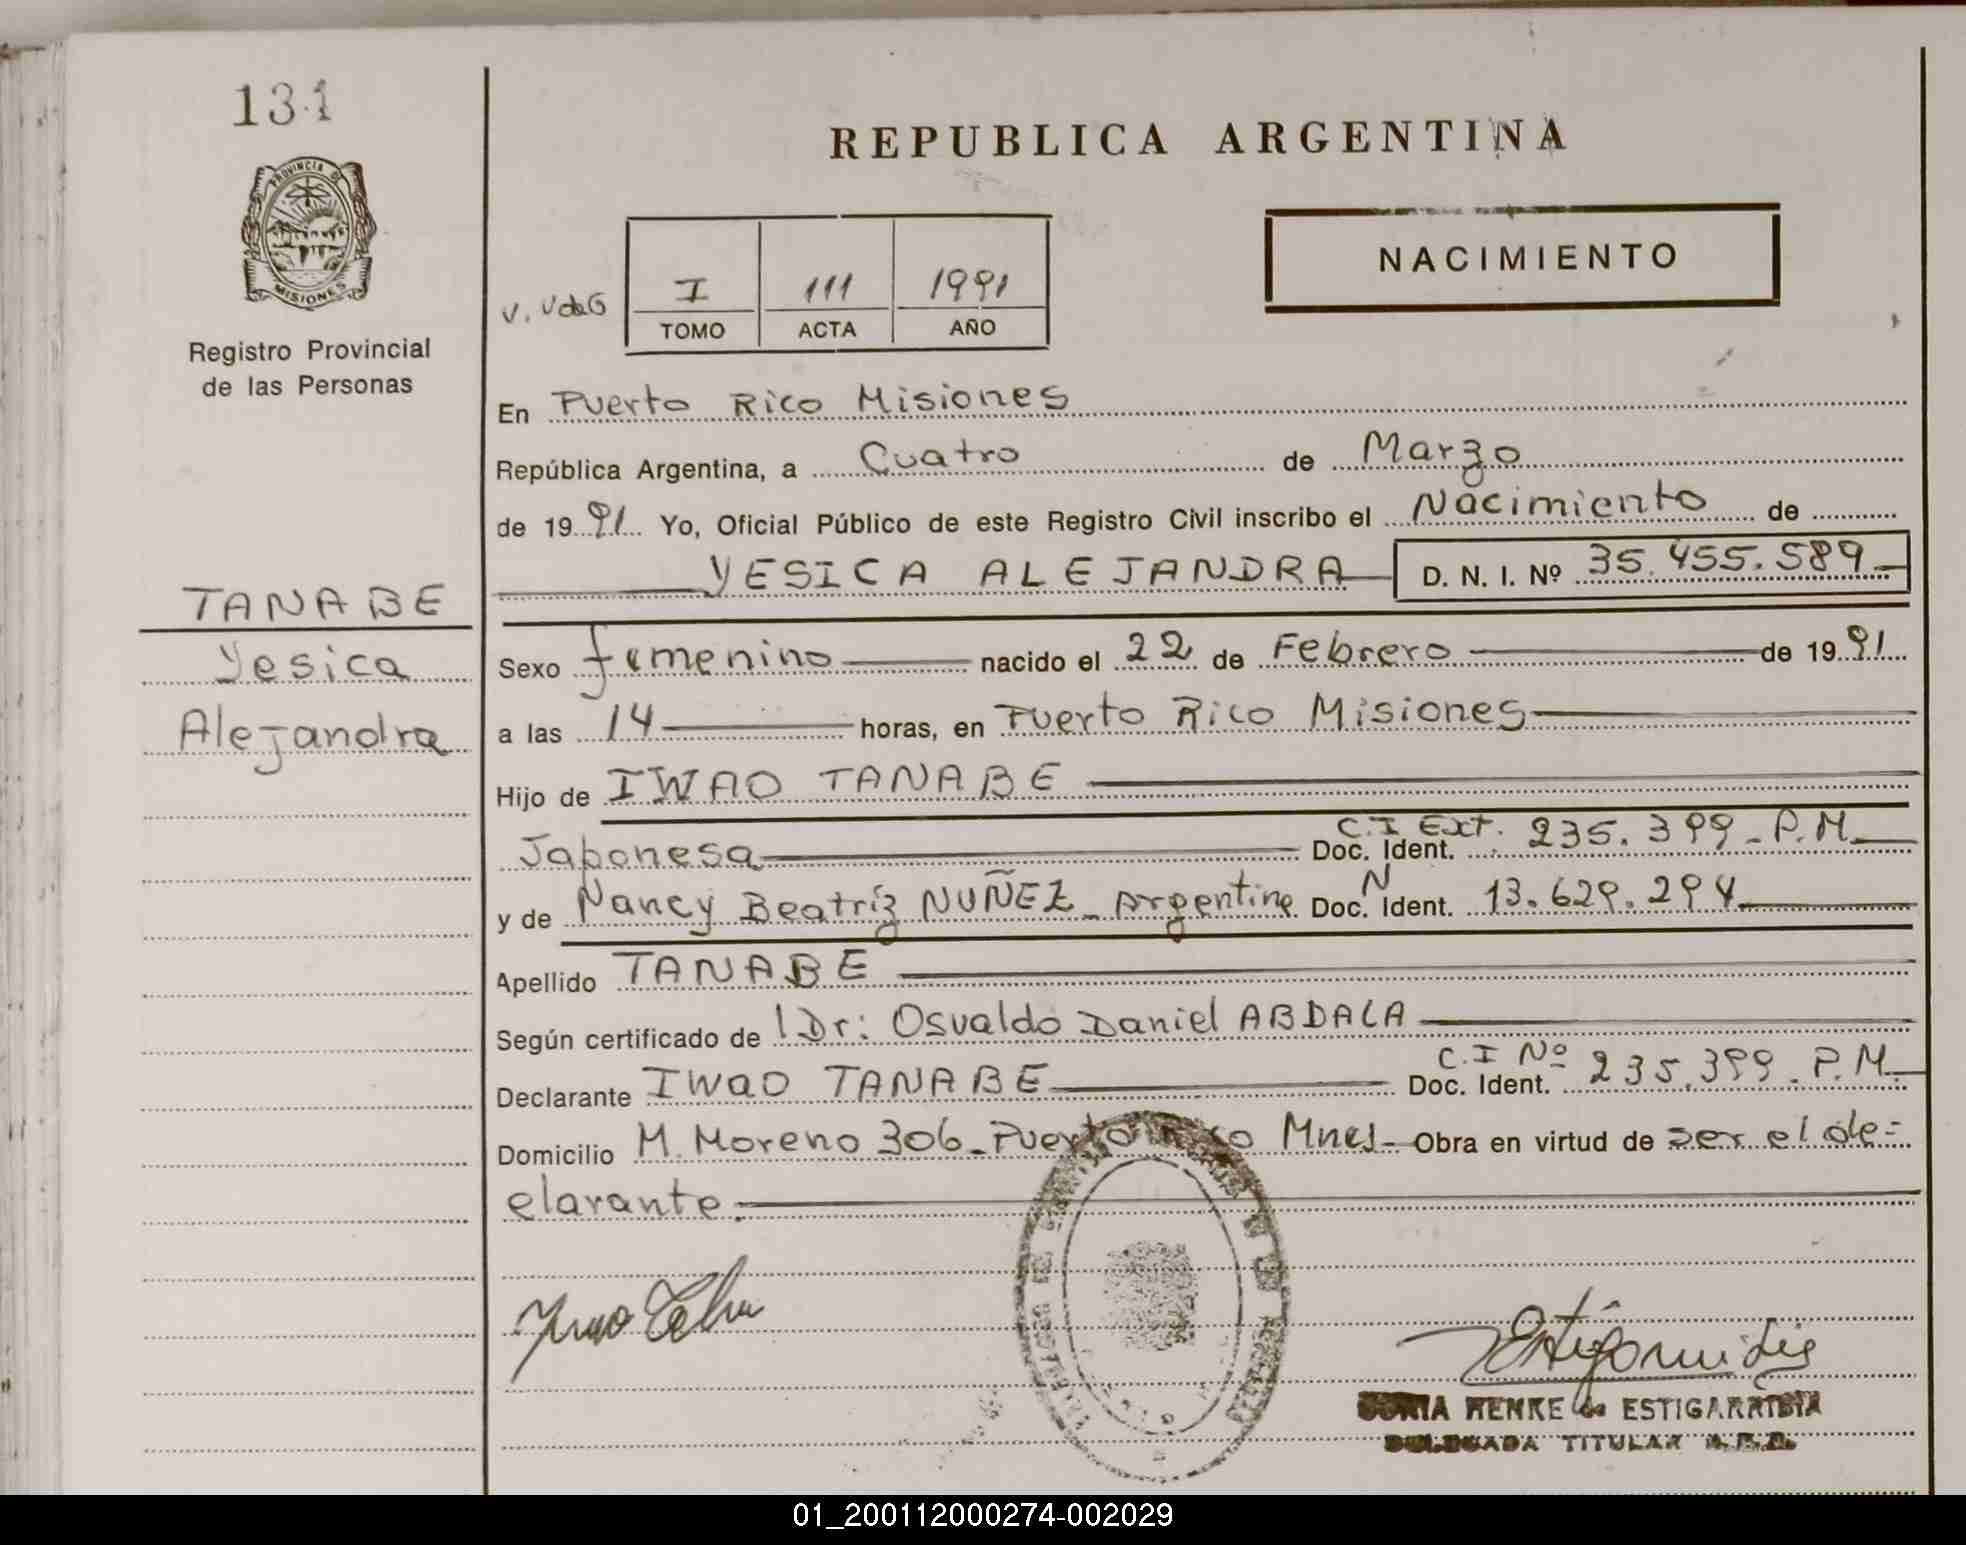 131
PROVINCIA DE
MISIONES
Registro Provincial
de las Personas
TANABE
Yesica
Alejandra
REPUBLICA ARGENTINA
NACIMIENTO
I 111 1991
TOMO ACTA AÑO
En Puerto Rico Misiones
República Argentina, a Cuatro de Marzo
de 1991 Yo, Oficial Público de este Registro Civil inscribo el Nacimiento de
YESICA ALEJANDRA D. N. I. Nº 35.455.589
Sexo femenino nacido el 22 de Febrero de 1991
a las 14 horas, en Puerto Rico Misiones
Hijo de IWAO TANABE
Japonesa C.I Ext. Doc. Ident. 235.399 - P.M.
y de Nancy Beatríz NUÑEZ - Argentina N Doc. Ident. 13.629.294
Apellido TANABE
Según certificado de Dr: Osvaldo Daniel ABDALA
Declarante Iwao TANABE C.I Nº Doc. Ident. 235.399. P.M.
Domicilio M. Moreno 306 - Puerto Rico Mnes - Obra en virtud de ser el de-
clarante.
SONIA HENKE de ESTIGARRIBIA
DELEGADA TITULAR
01_200112000274-002029